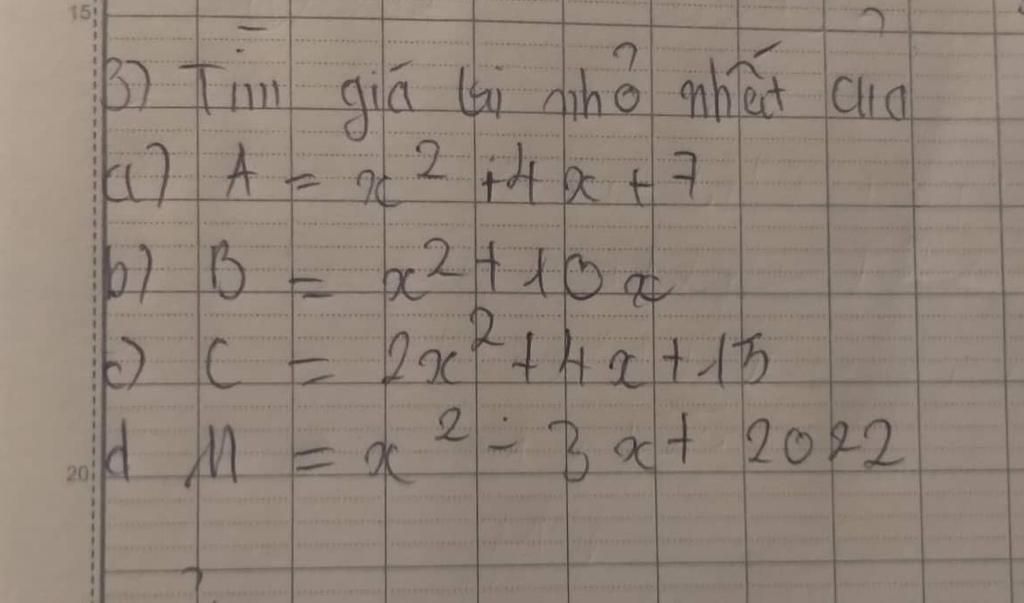 15
3) Tìm giá trị nhỏ nhất của
a) A = x² + 4x + 7
b) B = x² + 10x
c) C = 2x² + 4x + 15
d M = x² - 3x + 2022
20